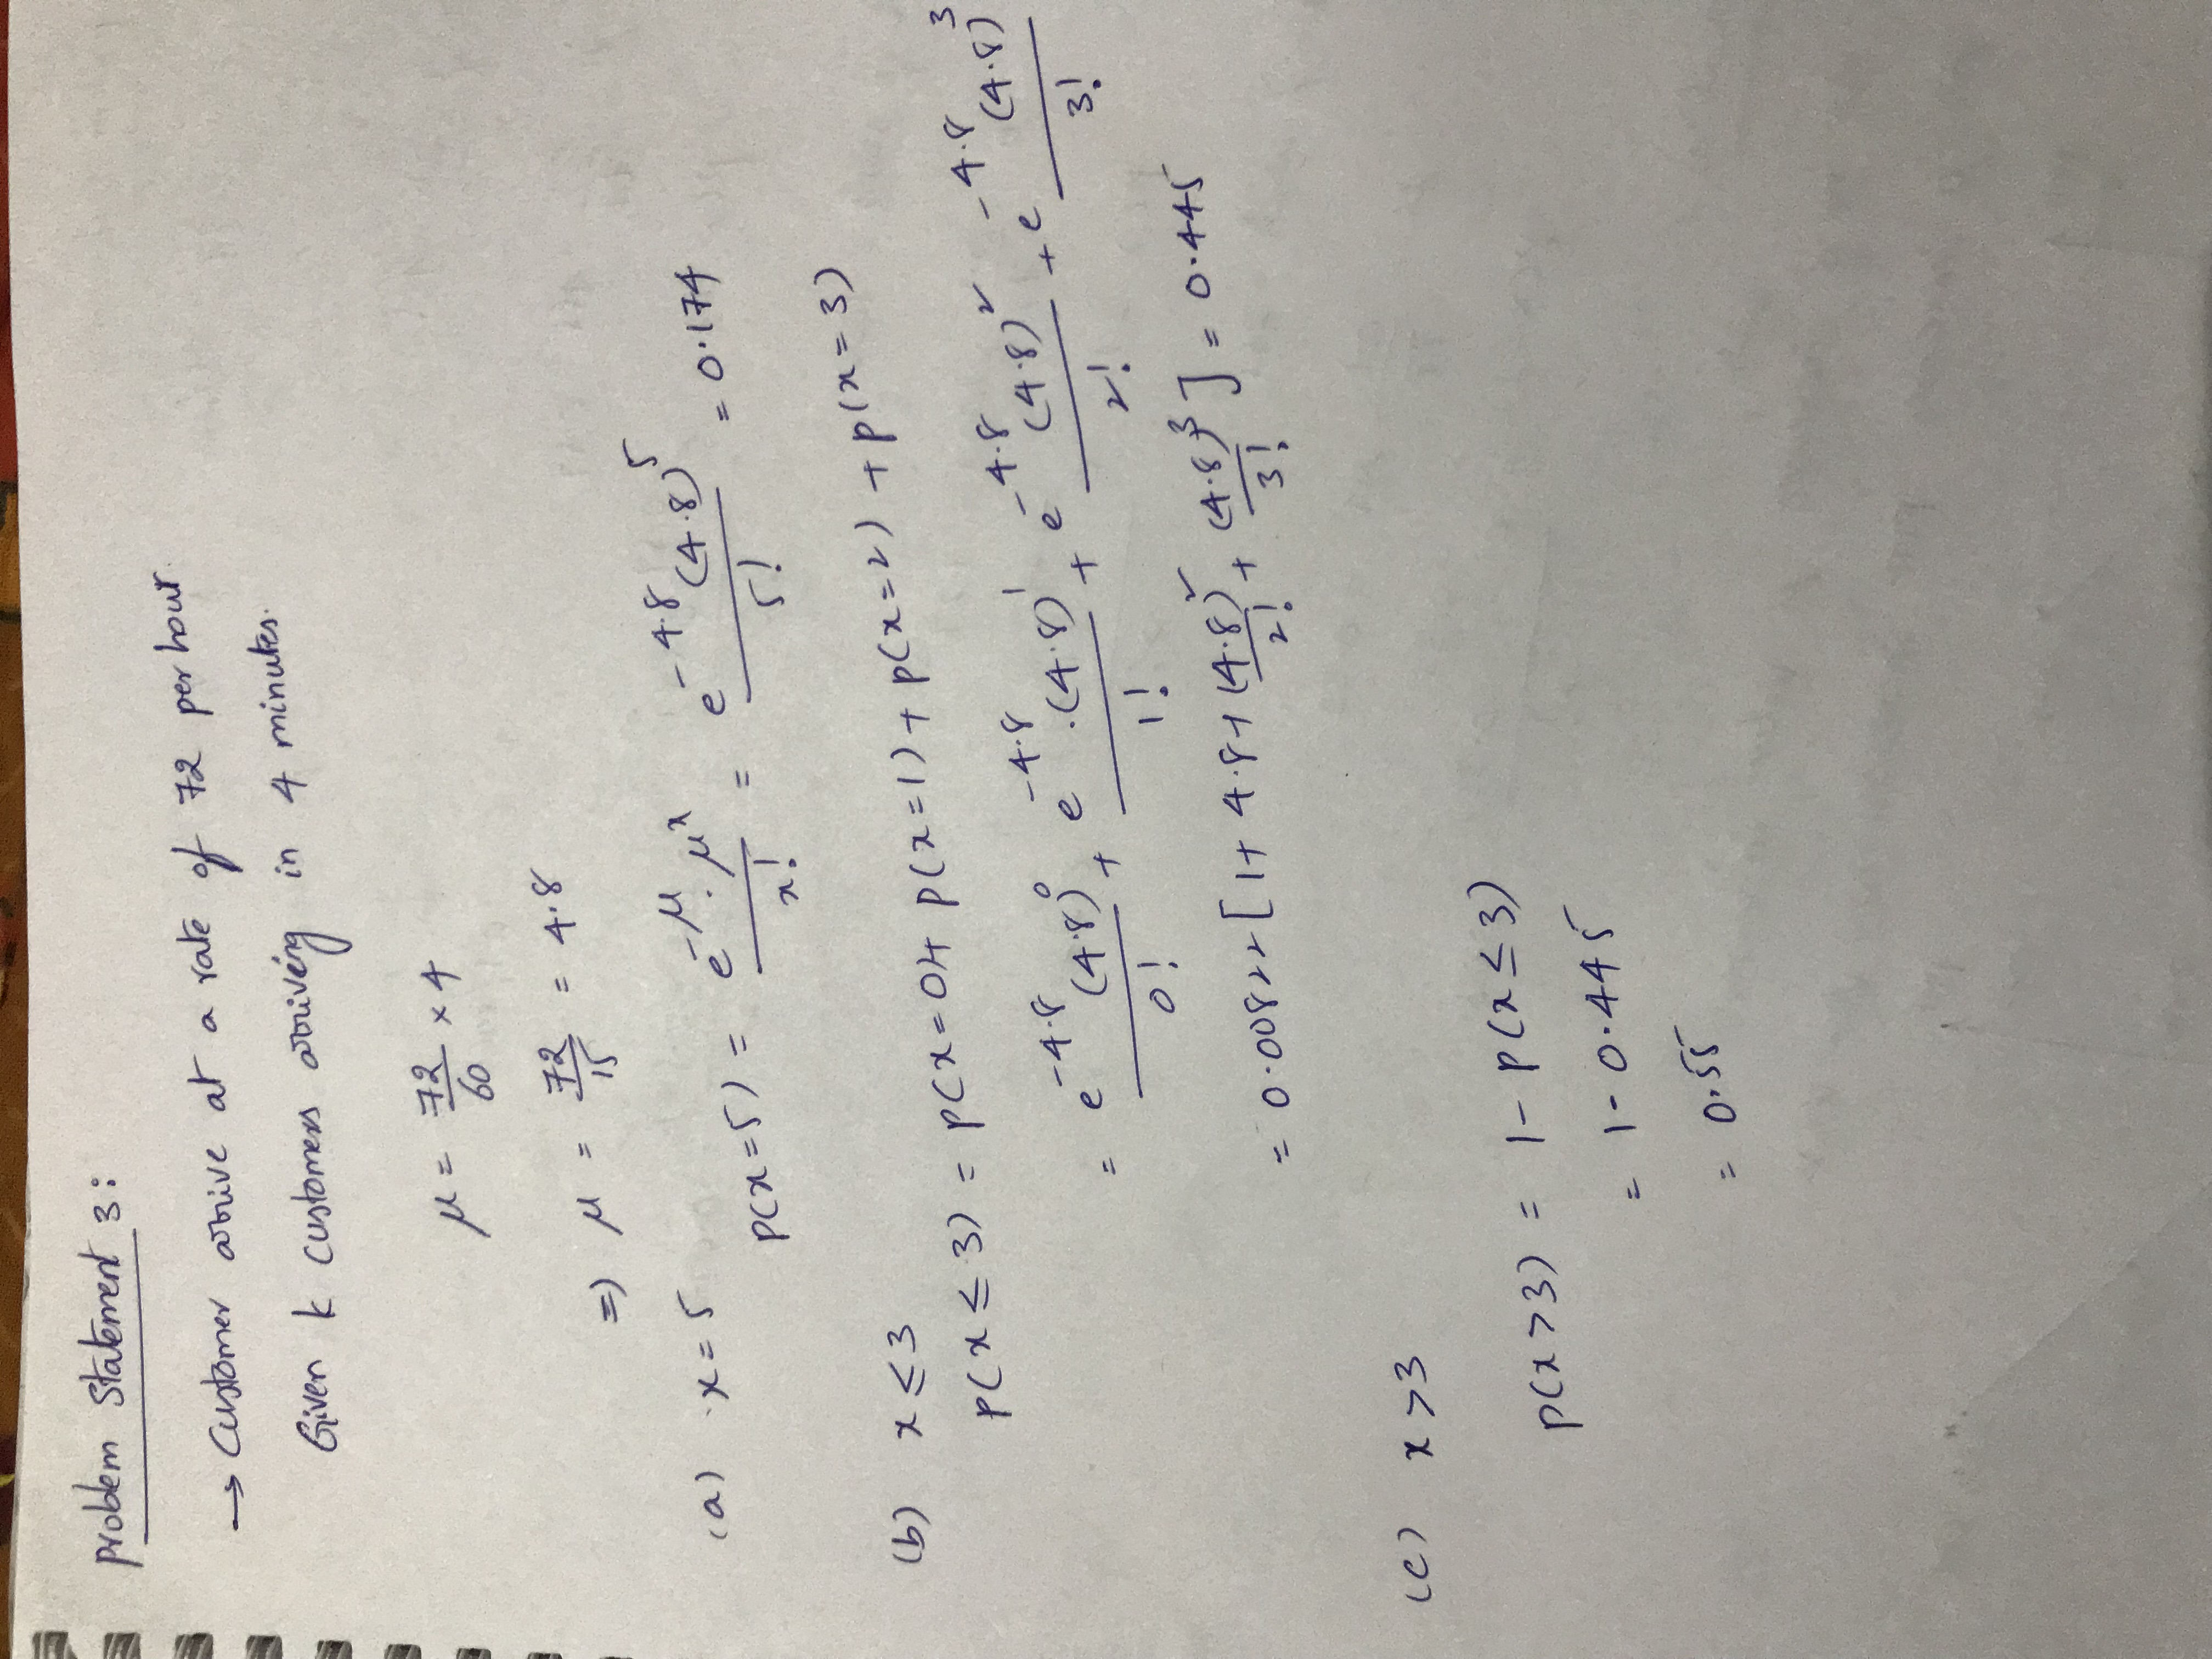 Problem Statement 3:
→ Customer arrive at a rate of 72 per hour.
Given k customers arriving in 4 minutes.
μ = 72/60 × 4
⇒ μ = 72/15 = 4.8
(a) x = 5
p(x=5) = e^-μ · μ^x / x! = e^-4.8 (4.8)^5 / 5! = 0.174
(b) x ≤ 3
p(x ≤ 3) = p(x=0)+ p(x=1) + p(x=2) + p(x=3)
= e^-4.8 (4.8)^0 / 0! + e^-4.8 .(4.8)^1 / 1! + e^-4.8 (4.8)^2 / 2! + e^-4.8 (4.8)^3 / 3!
= 0.00822 [1+ 4.8 + (4.8)^2 / 2! + (4.8)^3 / 3! ] = 0.445
(c) x > 3
p(x > 3) = 1 - p(x ≤ 3)
= 1 - 0.445
= 0.55